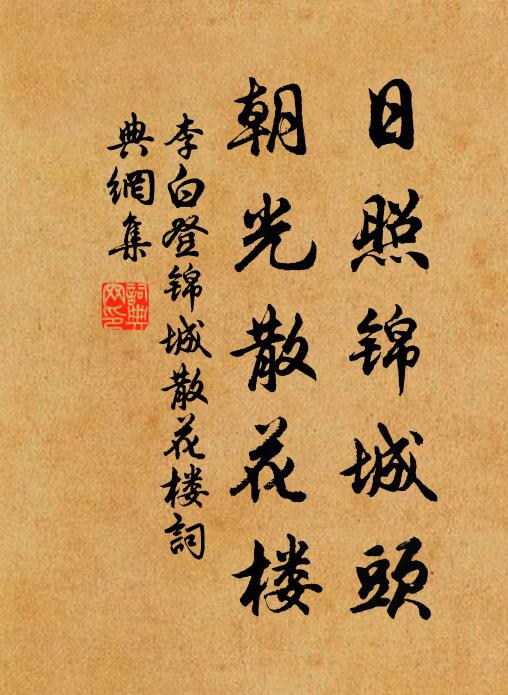 日照锦城頭
朝光散花楼
李白登锦城散花楼詞
典網集
詞典
网印